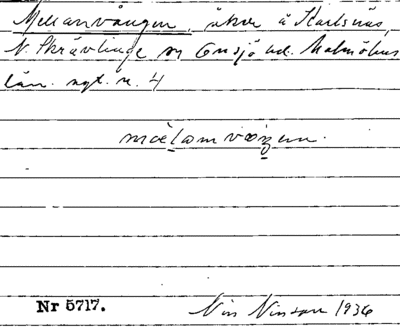 Mellanvången, åker å Karlsnäs,
N. Skrävlinge sn Oxie hd. Malmöhus
län. nyt. n. 4
mælamvoŋen.
Nr 5717. Nils Nilsson 1936